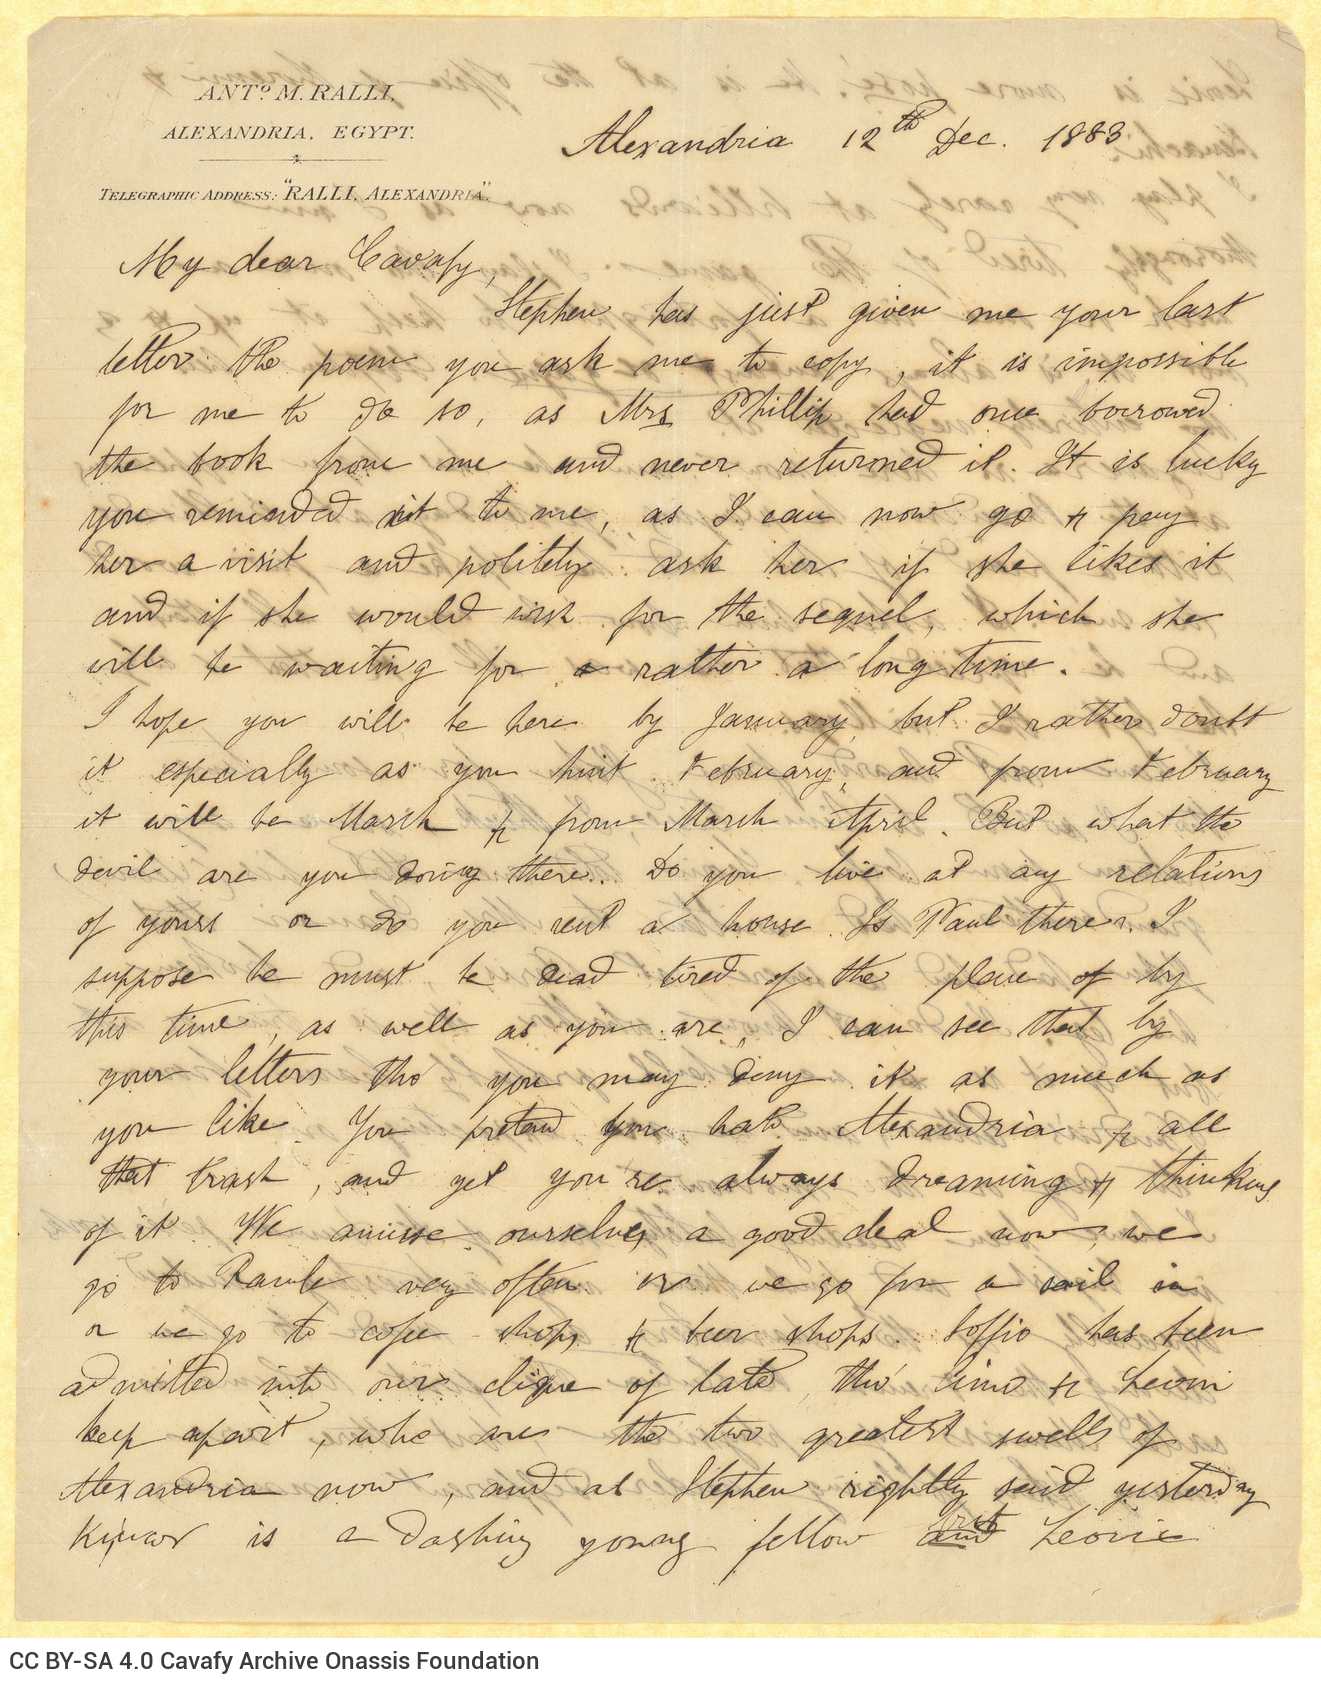 ANTº M. RALLI,
ALEXANDRIA, EGYPT.
TELEGRAPHIC ADDRESS: "RALLI, ALEXANDRIA".
Alexandria 12th Dec. 1883
My dear Cavafy,
Stephen has just given me your last
letter the poem you ask me to copy, it is impossible
for me to do so, as Mrs Phillip had once borrowed
the book from me and never returned it. It is lucky
you reminded it to me, as I can now go & pay
her a visit and politely ask her if she likes it
and if she would wish for the sequel, which she
will be waiting for a rather a long time.
I hope you will be here by January, but I rather doubt
it especially as you hint February, and from February
it will be March & from March April. But what the
devil are you doing there. Do you live at any relations
of yours or do you rent a house. Is Paul there. I
suppose he must be dead tired of the place of by
this time, as well as you are, I can see that by
your letters tho' you may deny it as much as
you like. You pretend you hate Alexandria & all
that trash, and yet you're always dreaming & thinking
of it. We amuse ourselves a good deal now, we
go to Ramle very often or we go for a sail in
or we go to coffee shops & beer shops. Soffio has been
admitted into our clique of late, tho' & Leoni
keep apart, who are the two greatest swells of
Alexandria now, and as Stephen rightly said yesterday
is a dashing young fellow and but Leonie
CC BY-SA 4.0 Cavafy Archive Onassis Foundation